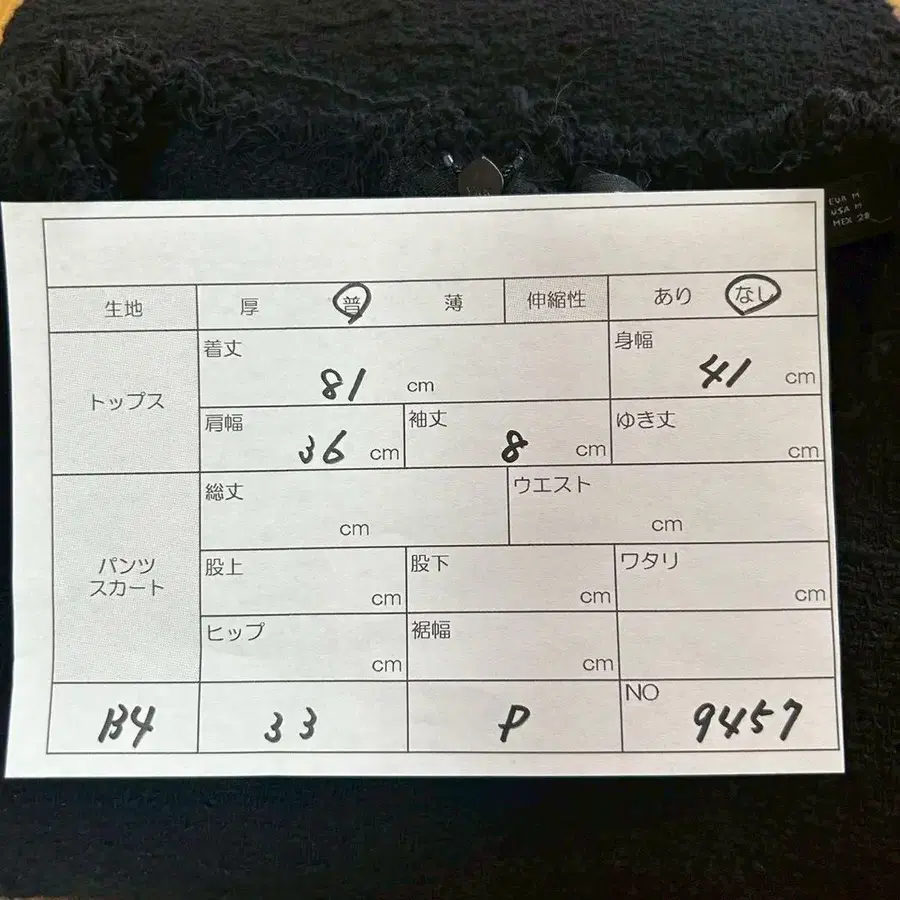 EUR M
USA M
MEX 28
生地 厚 普 薄 伸縮性 あり なし
トップス
着丈 81 cm
身幅 41 cm
肩幅 36 cm
袖丈 8 cm
ゆき丈 cm
パンツ
スカート
総丈 cm
ウエスト cm
股上 cm
股下 cm
ワタリ cm
ヒップ cm
裾幅 cm
B4 33 P NO 9457